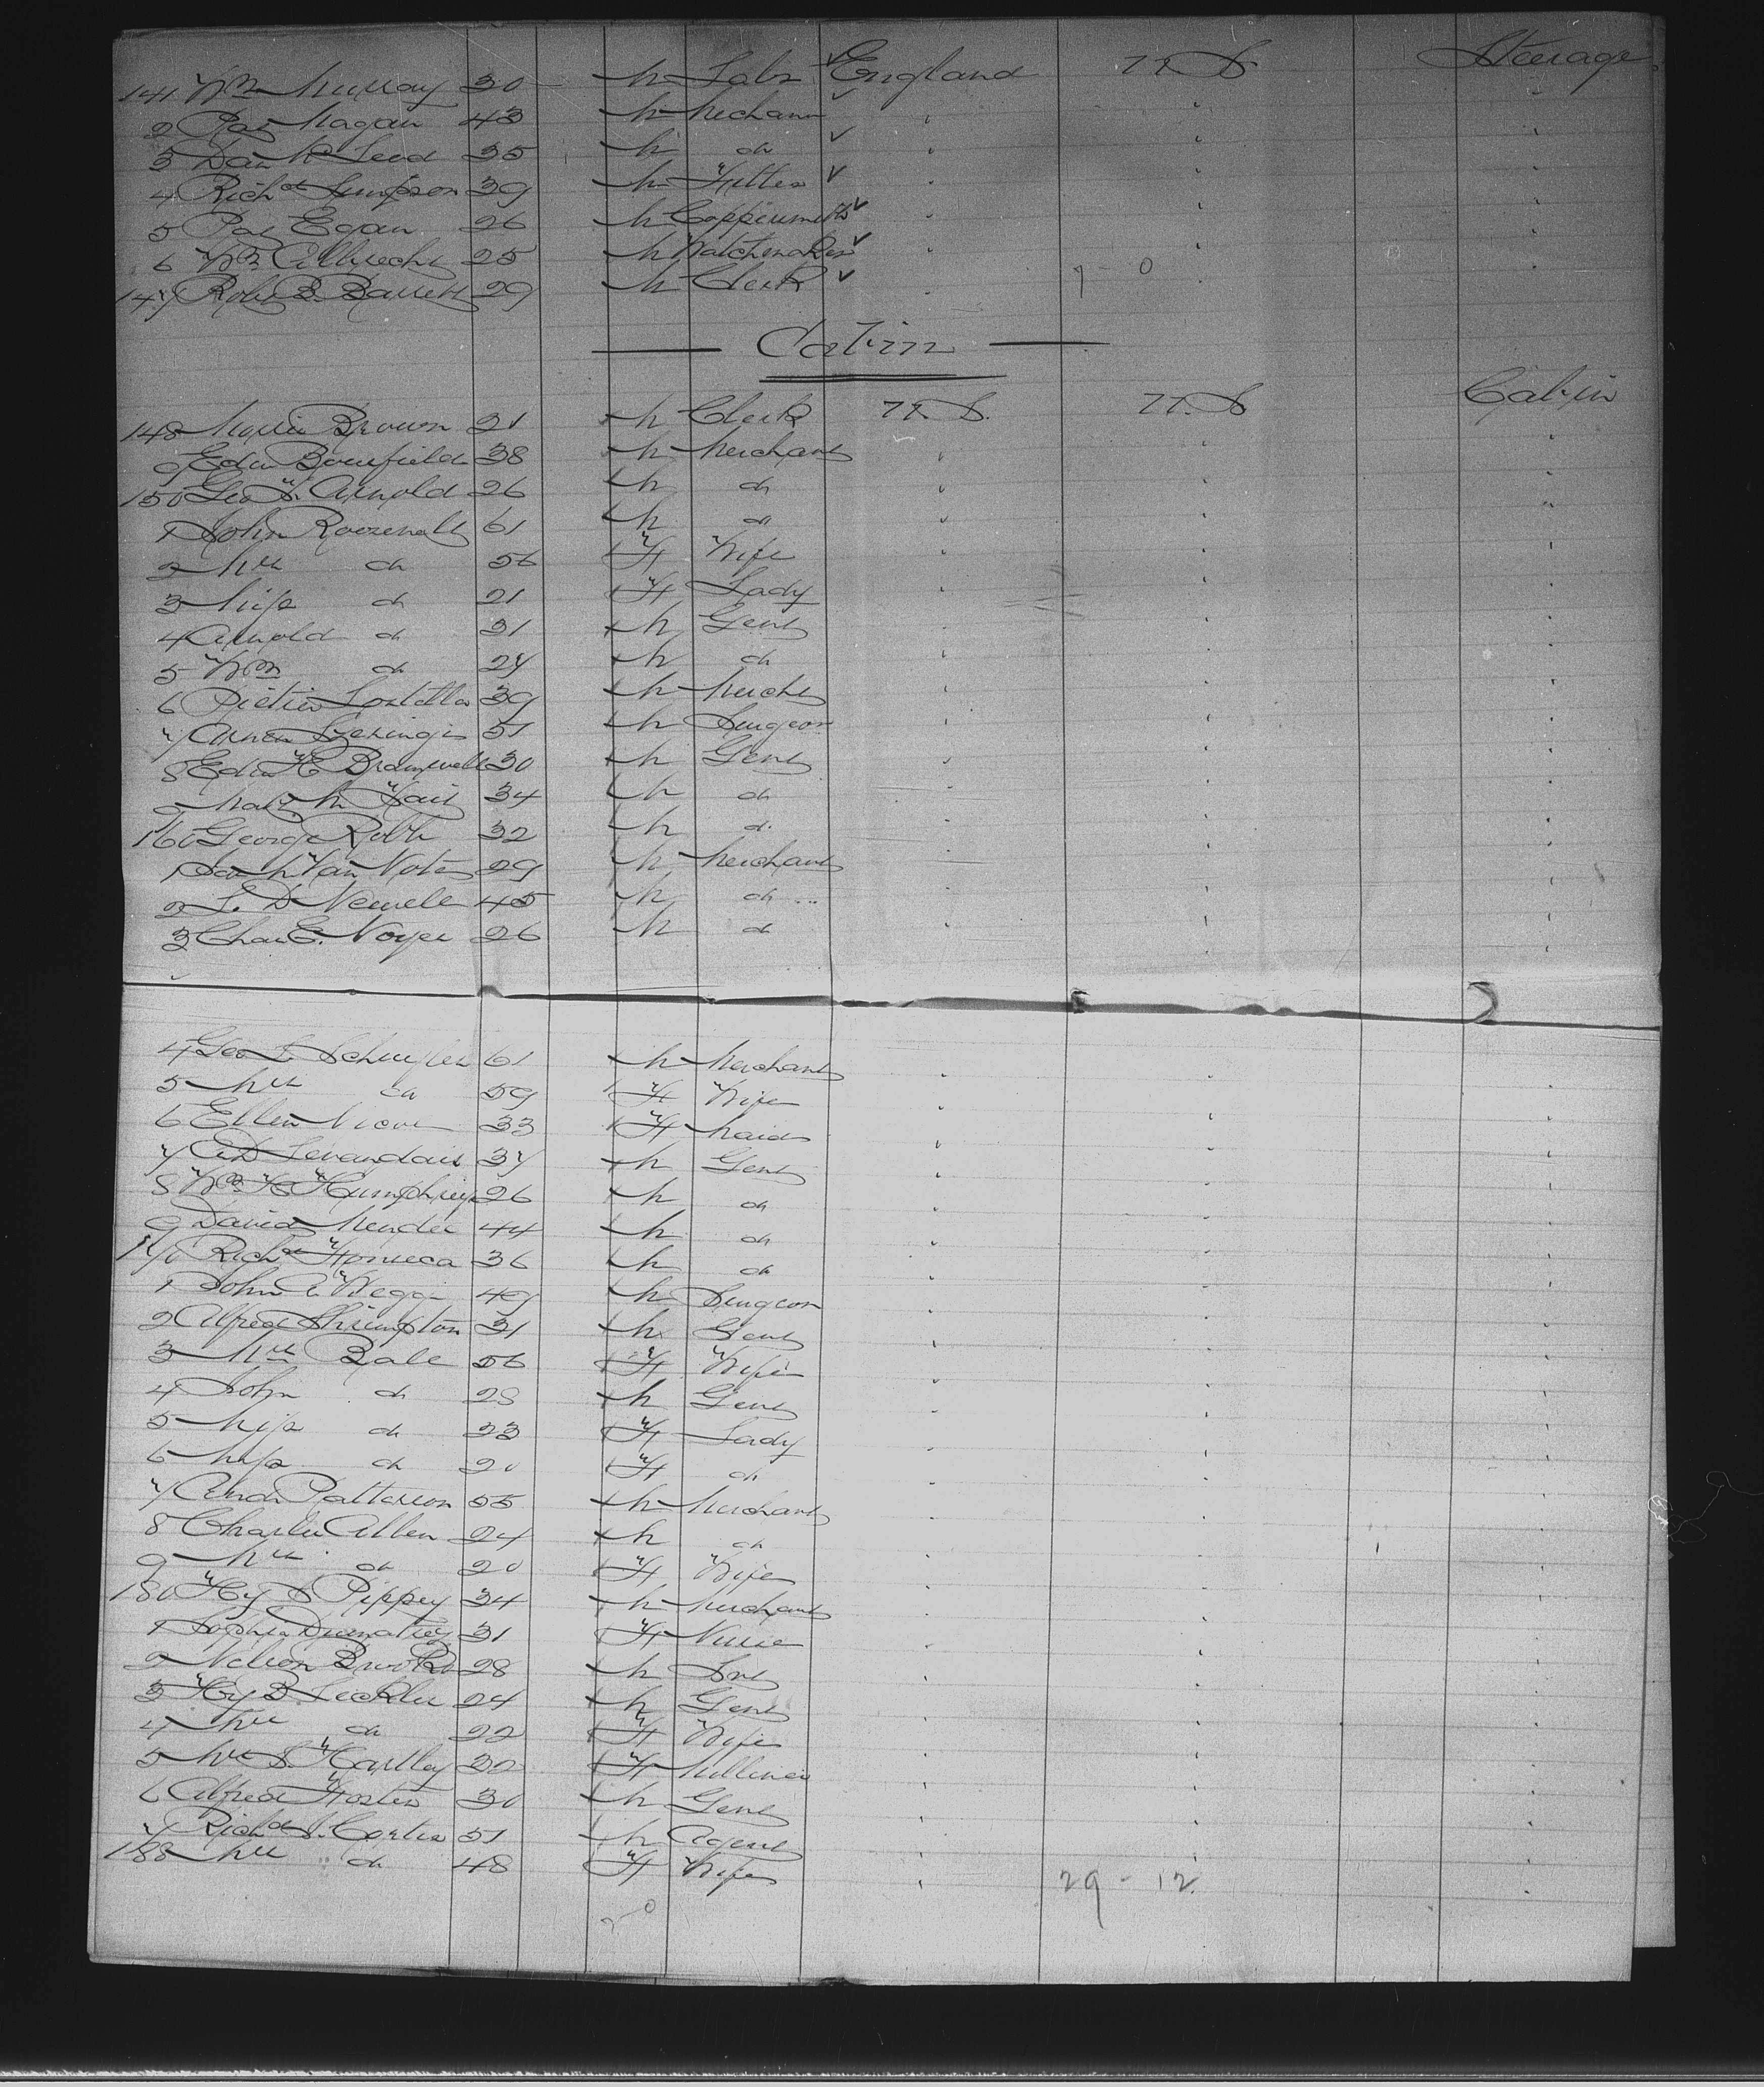 141 Wm Murray 30 M Labr ✓ England U.S. Steerage
2 Pat Magan 43 M Mechanic ✓ " " "
3 Dan McLeod 35 M do ✓ " " "
4 Richd Simpson 39 M Fitter ✓ " " "
5 Pat Egan 26 M Coppersmith ✓ " " "
6 Wm Albrecht 25 M Watchmaker ✓ " " "
147 Robt B. Barrett 29 M Clerk ✓ " 7 - 0 "
Cabin
148 Brown 21 M Clerk U.S. U.S Cabin
9 Edw Bousfield 38 M Merchant " " "
150 Geo S. Arnold 26 M do " " "
1 John Roosevelt 61 M do " " "
2 Mrs do 56 F Wife " " "
3 Miss do 21 F Lady " " "
4 Arnold do 31 M Gent " " "
5 Wm do 24 M do " " "
6 39 M Mercht " " "
7 51 M Surgeon " " "
8 Edw H Bramwell 30 M Gent " " "
9 34 M do " " "
160 George Robb 32 M do " " "
1 Van 29 M Merchant " " "
2 L. D Newell 45 M do " " "
3 Chas E. Noyes 26 M do " " "
4 Geo L. Schuyler 61 M Merchant " " "
5 Mrs do 59 F Wife " " "
6 Ellen 33 F Maid " " "
7 37 M Gent " " "
8 Wm H Humphreys 26 M do " " "
9 David Mendes 44 M do " " "
170 Richd Fonseca 36 M do " " "
1 John A Wegg 49 M Surgeon " " "
2 Alfred Shrimpton 31 M Gent " " "
3 Mrs Bale 56 F Wife " " "
4 John do 28 M Gent " " "
5 Miss do 23 F Lady " " "
6 Miss do 20 F do " " "
7 Andr Patterson 55 M Merchant " " "
8 Charles Allen 24 M do " " "
9 Mrs do 20 F Wife " " "
180 Hy S Pippey 34 M Merchant " " "
1 Sophia 31 F Nurse " " "
2 Nelson Brooks 28 M " " "
3 Hy B. 24 M Gent " " "
4 Mrs do 22 F Wife " " "
5 Mrs S. Hartley 30 F Milliner " " "
6 Alfred Foster 30 M Gent " " "
7 Richd J. Cortis 51 M Agent " " "
188 Mrs do 48 F Wife " 29 - 12 "